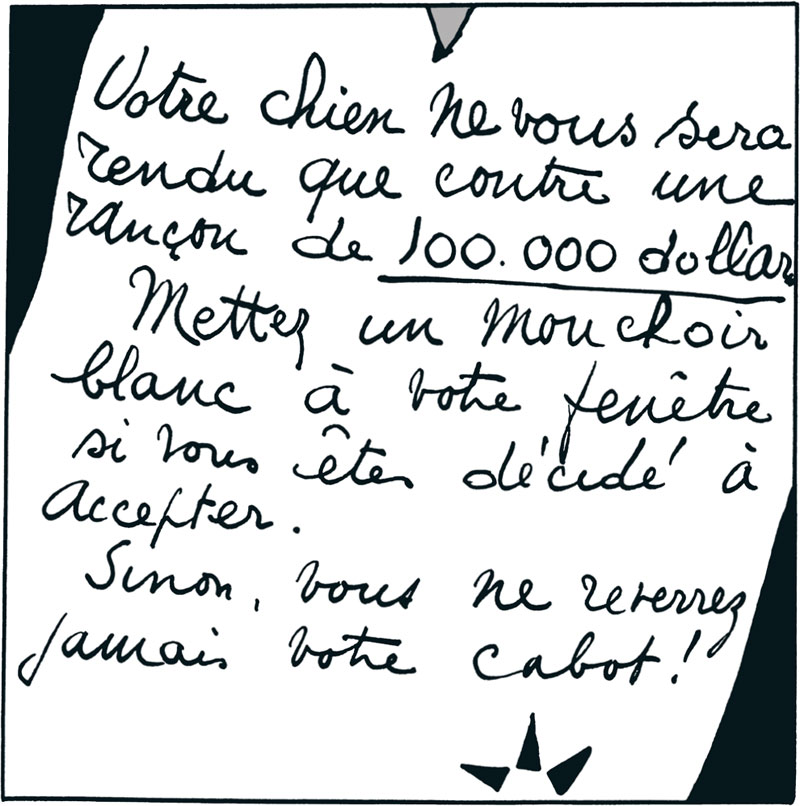 Votre chien ne vous sera
rendu que contre une
rançon de 100.000 dollars
Mettez un mouchoir
blanc à votre fenêtre
si vous êtes décidé à
accepter.
Sinon, vous ne reverrez
jamais votre cabot!